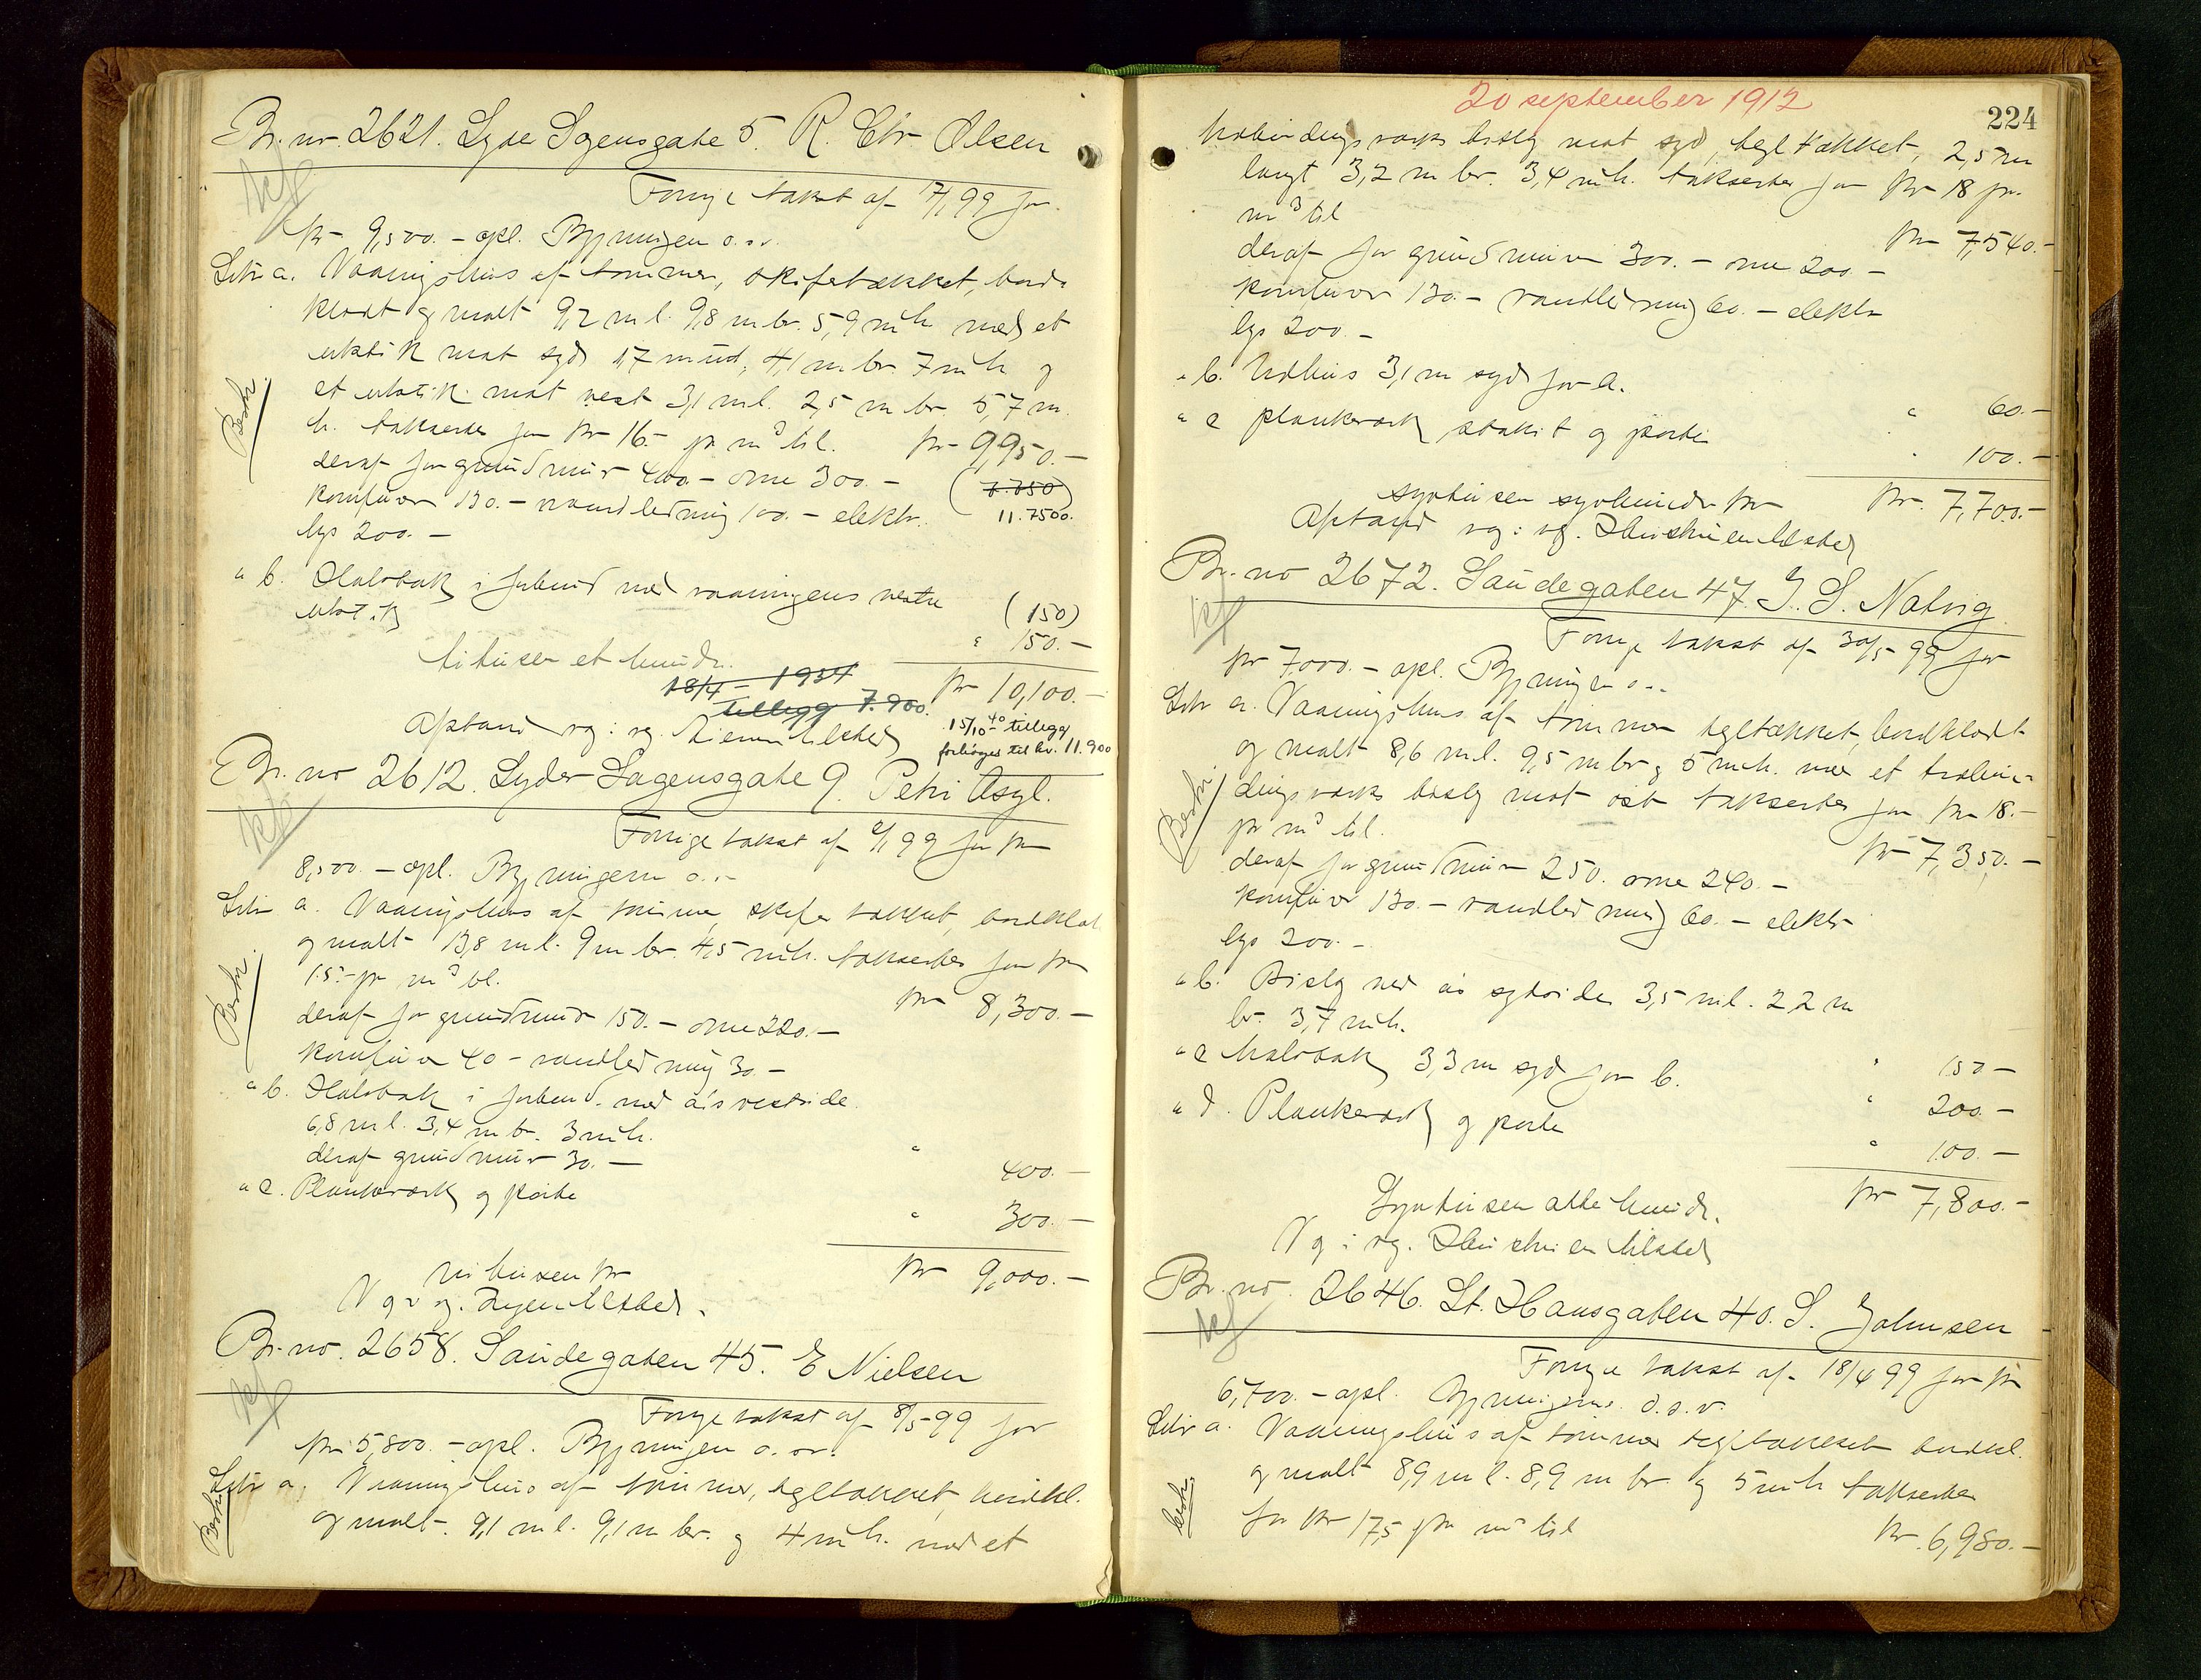 Br. no 2621. Lyder Sagensgate 5. R. Chr Olsen
kf
Forrige takst af 1/1 99 for
kr 9,500.- opl. Bygningen o.s.v.
Litr a. Vaaningshus af tømmer, skifertækket, bord-
klædt og malt 9,2 m l. 9,8 m br. 5,9 m h. med et
utstik mot syd 1,7 m ud, 4,1 m br. 7 m h og
et utstik mot vest 3,1 m l. 2,5 m br. 5,7 m.
h. takseres for kr 16.- pr m³ til. kr 9,950.-
deraf for grundmur 400.- ovne 300.- (7.750)
komfurer 130.- vandledning 100.- elektr. 11.7500.
lys 200.-
Besk.
" b. Halvtak i forbind. med vaaningens vestre
utstik (150)
" 150.-
titusen et hundr. kr 10,100.-
18/4 - 1934
tillegg 7.900.
Afstand og: vg. tilsted 15/10-40 tillegg
forhøyes til kr. 11.900
Br. no 2612. Lyder Sagensgate 9. Petri Asyl.
kf
Forrige takst af 2/1 99 for kr
8,500.- opl. Bygningerne o.s.v.
Litr a. Vaaningshus af tømmer, skifer tækket, bordklæd
og malt 13,8 m l. 9 m br. 4,5 m h. takseres for kr
15.- pr m³ til. kr 8,300.-
deraf for grundmur 150.- ovne 220.-
komfurer 40 - vandledning 30.-
Besk.
" b. Halvtak i forbend. med a's vestside.
6,8 m l. 3,4 m br. 3 m h.
deraf grundmur 30.- " 400.-
" c. Plankeværk og porte " 300.-
ni tusen kr kr 9,000.-
Vg: vg. Ingen tilsted.
Br. no. 2658. Sandegaten 45. E Nielsen
kf
Forrige takst af 8/5-99 for
kr 5,800.- opl. Bygningen o.s.v.
Litr a. Vaaningshus af tømmer, tegltækket, bordkl.
Besk.
og malt. 9,1 m l. 9,1 m br. og 4 m h. med et
20 september 1912
224
utbindingsverks bislag mot syd, tegltækket, 2,5 m
langt 3,2 m br. 3,4 m h. takseres for kr 18 pr.
m³ til kr 7,540.-
deraf for grundmuren 300.- ovne 200.-
komfurer 130.- vandledning 60.- elektr
lys 200.-
" b. Udhus 3,1 m syd for a. " 60.-
" c plankeværk stakit og porte " 100.-
syvtusen syvhundr kr kr. 7,700.-
Afstand vg: vg. Hustruen tilsted
Br. no 2672. Sandegaten 47. J. S. Natvig
kf
Forrige takst af 30/5-99 for
kr 7,000.- opl. Bygningen o.s.
Litr a. Vaaningshus af tømmer tegltækket, bordklædt
og malt 8,6 m l. 9,5 m br og 5 m h. med et utbin-
dingsværks bislag mot øst takseres for kr 18.-
Besk.
pr m³ til. kr 7,350.-
deraf for grundmur 250. ovne 240.-
komfurer 130.- vandledning 60.- elektr
lys 200.-
" b. Bislag ved a's sydside 3,5 m l. 2,2 m
br. 3,7 m h. " 150 -
" c halvtak 3,3 m syd for b. " 200.-
" d. Plankeværk og porte " 100.-
Syvtusen otte hundr. kr 7,800.-
Vg: vg. Hustruen tilsted
Br. no. 2646. St. Hansgaten 40. S. Johnsen
kf
Forrige takst af 18/4 99 for kr
6,700.- opl. Bygningerne o.s.v.
Litr a. Vaaningshus af tømmer tegltækket bordkl.
og malt 8,9 m l. 8,9 m br og 5 m h takseres
Besk.
for kr 17,5 pr m³ til kr. 6,950.-